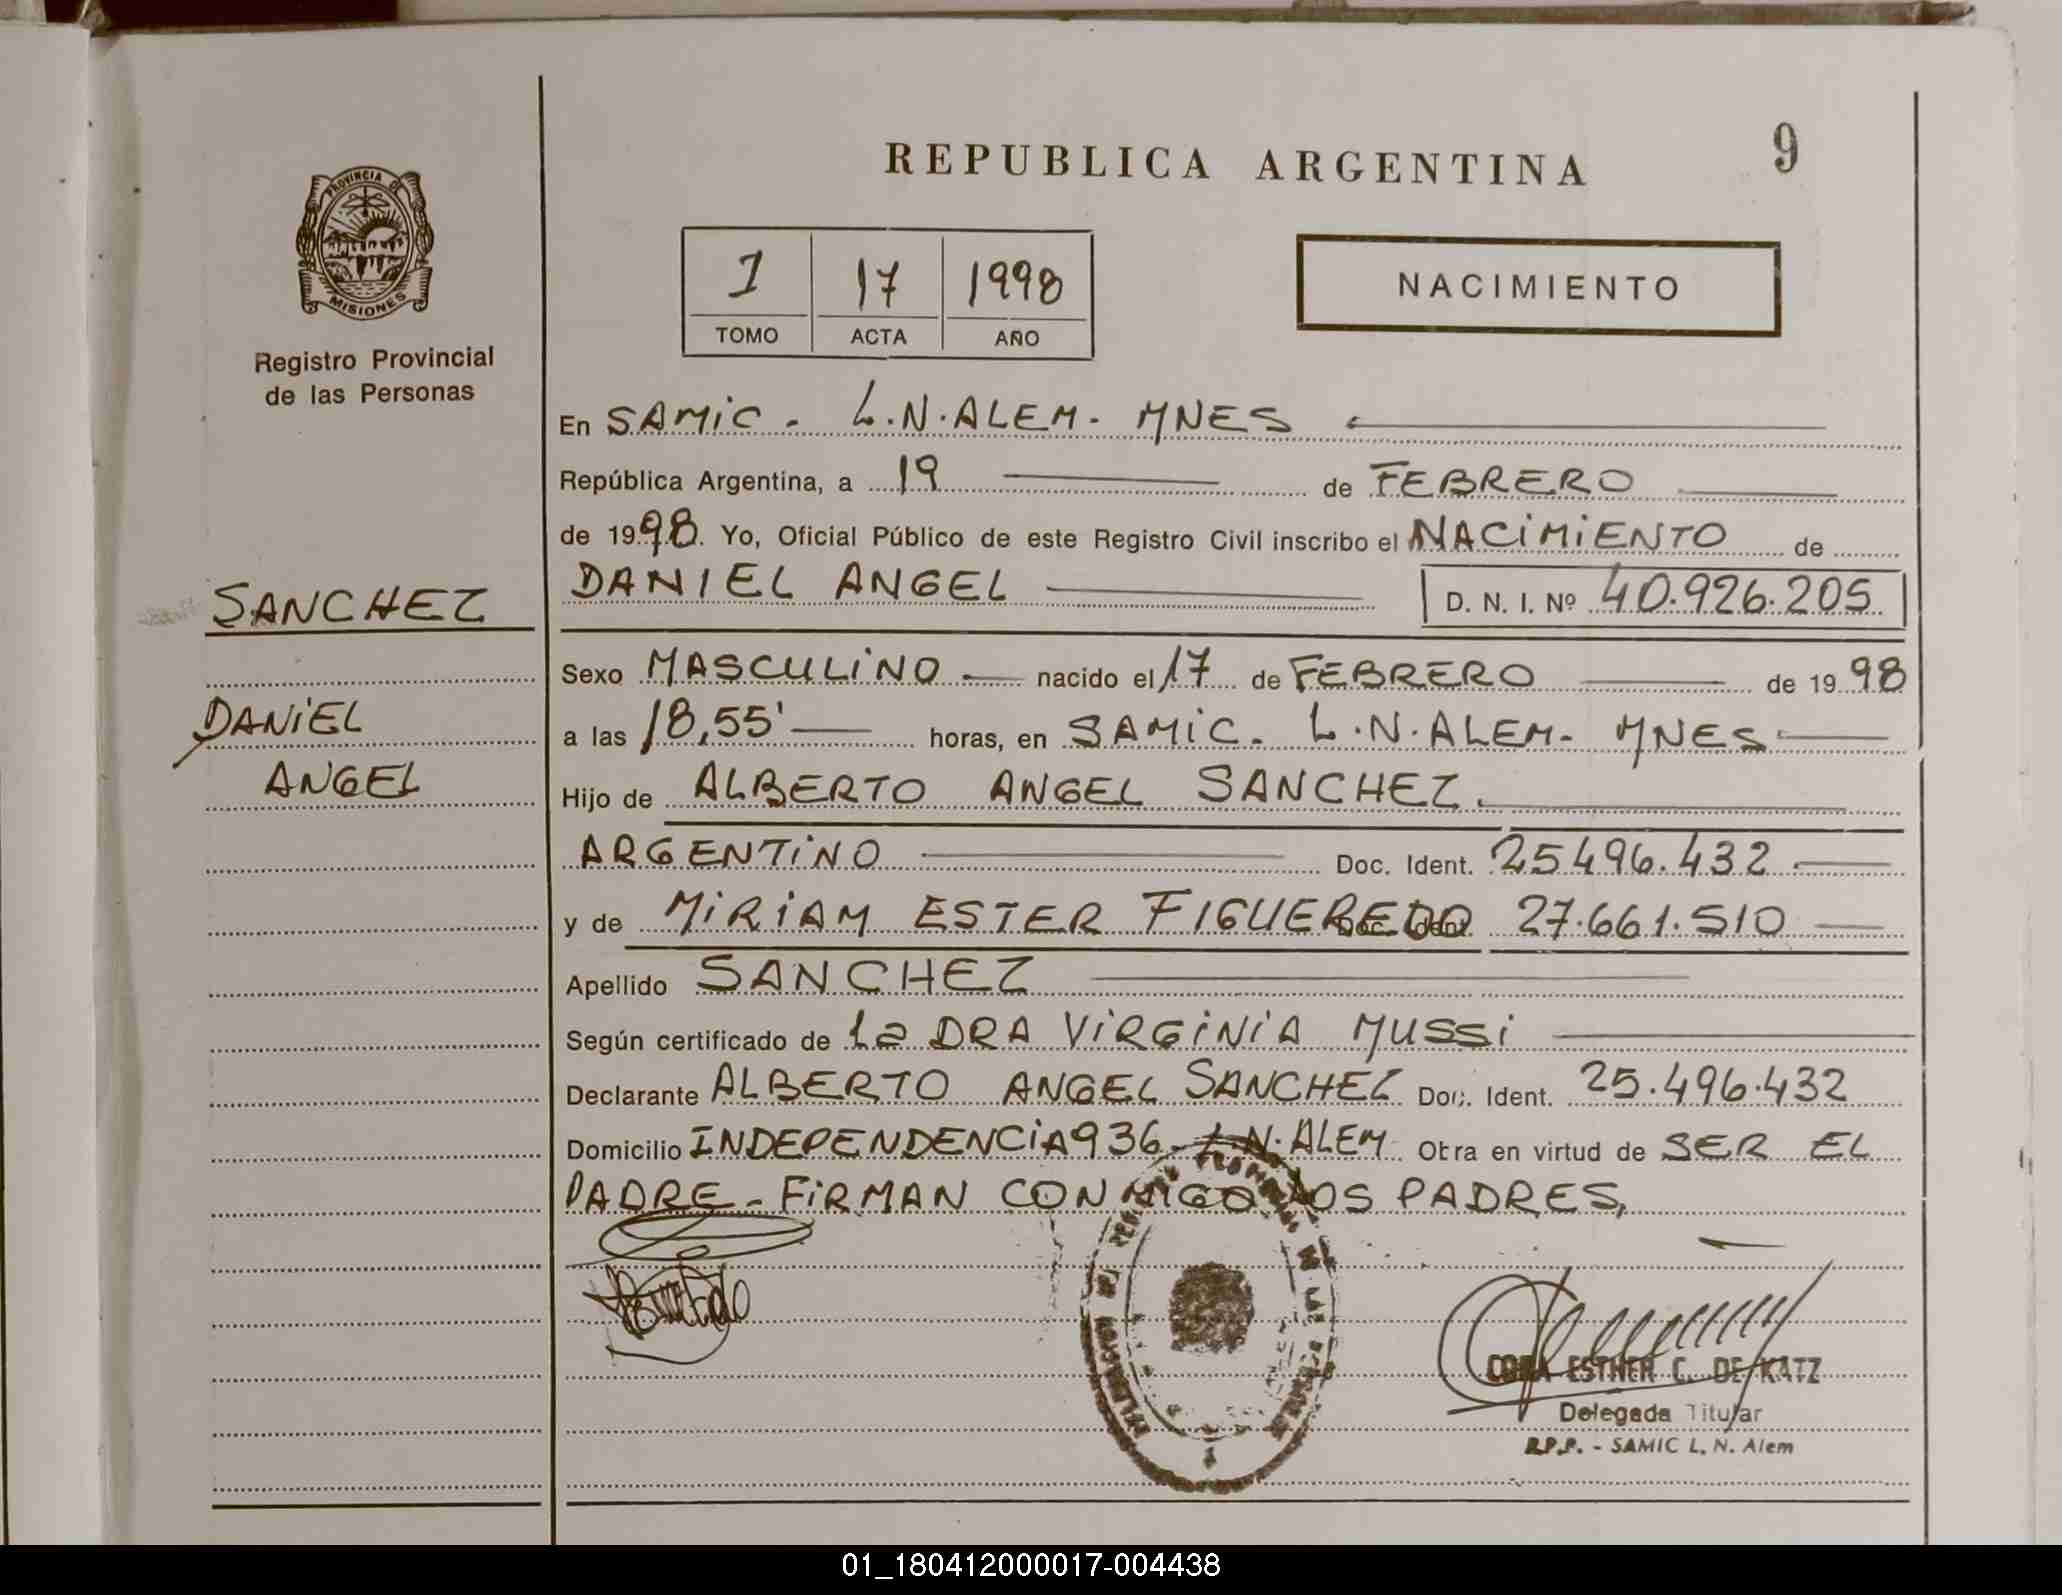 REPUBLICA ARGENTINA
9
PROVINCIA DE
MISIONES
Registro Provincial
de las Personas
1 17 1998
TOMO ACTA AÑO
NACIMIENTO
En SAMiC - L.N.ALEM - MNES
República Argentina, a 19 de FEBRERO
de 1998. Yo, Oficial Público de este Registro Civil inscribo el NACiMiENTO de
DANIEL ANGEL D. N. I. Nº 40.926.205
SANCHEZ
DANiEL
ANGEL
Sexo MASCULiNO nacido el 17 de FEBRERO de 1998
a las 18,55' horas, en SAMiC - L.N.ALEM - MNES
Hijo de ALBERTO ANGEL SANCHEZ
ARGENTiNO Doc. Ident. 25.496.432
y de MiRiAM ESTER FIGUEREDO 27.661.510
Apellido SANCHEZ
Según certificado de la DRA ViRGiNiA MUSSi
Declarante ALBERTO ANGEL SANCHEZ Doc. Ident. 25.496.432
Domicilio INDEPENDENCiA 936 - L.N.ALEM Obra en virtud de SER EL
PADRE - FiRMAN CONMIGO LOS PADRES,
ESTHER C. DE KATZ
Delegada Titular
R.P.P. - SAMIC L. N. Alem
01_180412000017-004438